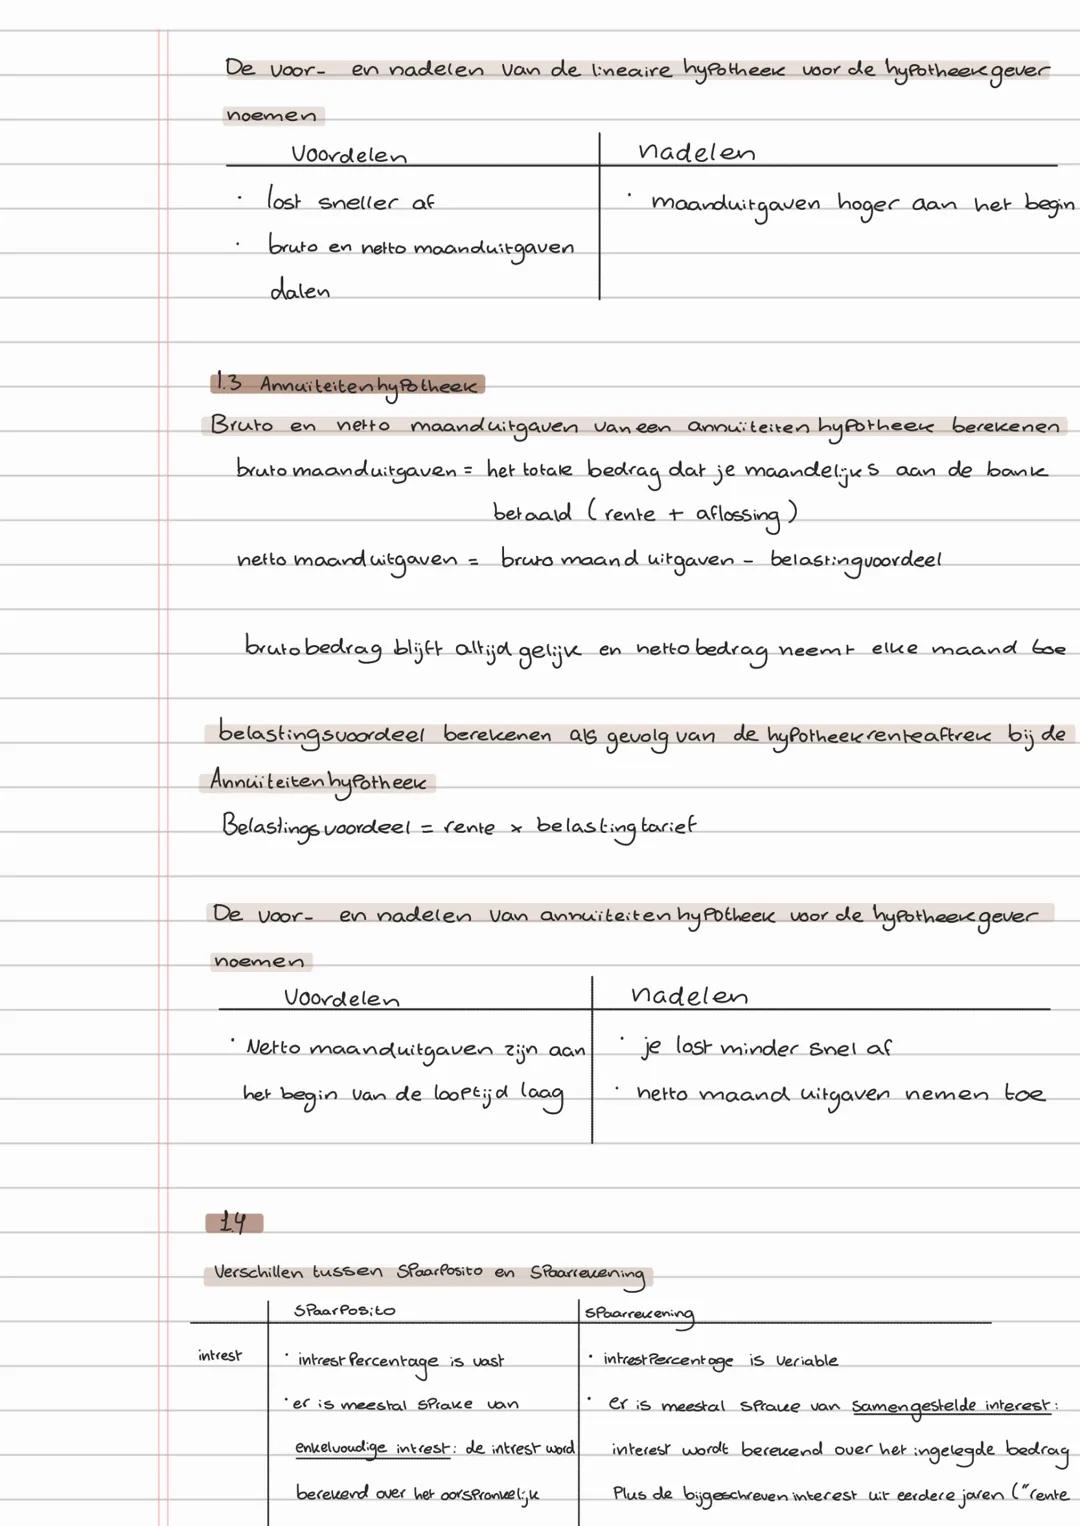 De voor- en nadelen van de lineaire hypotheek voor de hypotheekgever
noemen
Voordelen
nadelen
· lost sneller af
· maanduitgaven hoger aan het begin
· bruto en netto maanduitgaven
dalen
1.3 Annuïteitenhypotheek
Bruto en netto maanduitgaven van een annuïteiten hypotheek berekenen
bruto maanduitgaven = het totale bedrag dat je maandelijks aan de bank
betaald (rente + aflossing)
netto maanduitgaven = bruto maand uitgaven - belastingvoordeel
bruto bedrag blijft altijd gelijk en netto bedrag neemt elke maand toe
belastingsvoordeel berekenen als gevolg van de hypotheekrenteaftrek bij de
Annuïteitenhypotheek
Belastingsvoordeel = rente x belastingtarief
De voor- en nadelen van annuïteitenhypotheek voor de hypotheekgever
noemen
Voordelen
nadelen
· Netto maanduitgaven zijn aan
het begin van de looptijd laag
· je lost minder snel af
· netto maand uitgaven nemen toe
1.4
Verschillen tussen Spaarposito en Spaarrekening
Spaarposito
Spaarrekening
intrest
· intrest Percentage is vast
· er is meestal sprake van
enkelvoudige intrest: de intrest word
berekend over het oorspronkelijk
· intrest Percentage is Veriable
· er is meestal sprake van Samengestelde interest:
interest wordt berekend over het ingelegde bedrag
Plus de bijgeschreven interest uit eerdere jaren ("rente